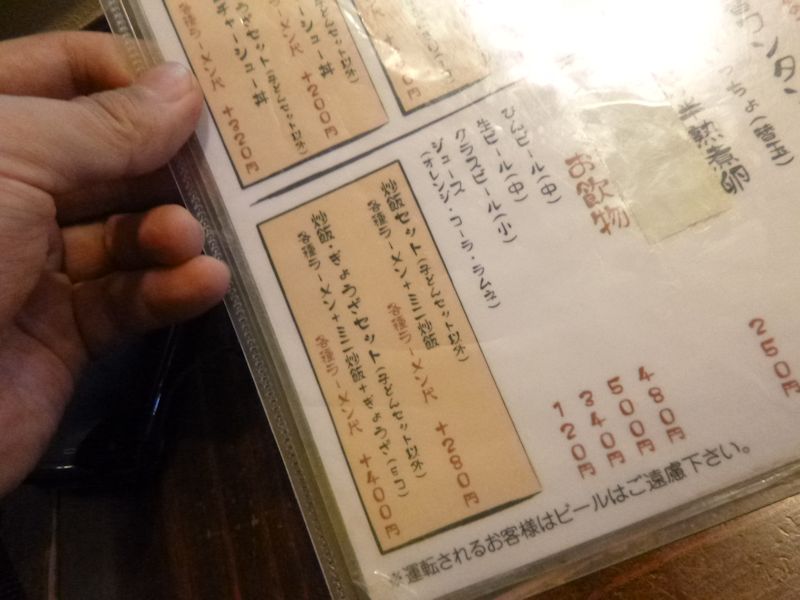 ワンタン
っちょ(替玉)
半熟煮卵
250円
お飲物
びんビール(中) 480円
生ビール(中) 500円
グラスビール(小) 340円
ジュース 120円
(オレンジ・コーラ・ラムネ)
炒飯セット(子どんセット以外)
各種ラーメン+ミニ炒飯
各種ラーメン代 +280円
炒飯・ぎょうざセット(子どんセット以外)
各種ラーメン+ミニ炒飯+ぎょうざ(5コ)
各種ラーメン代 +400円
チャーシュー丼
各種ラーメン代 +200円
うざセット(子どんセット以外)
チャーシュー丼
各種ラーメン代 +320円
※運転されるお客様はビールはご遠慮下さい。